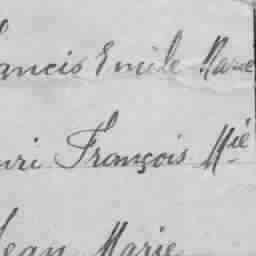 Francis Emile Marie
enri François Mie
Jean Marie